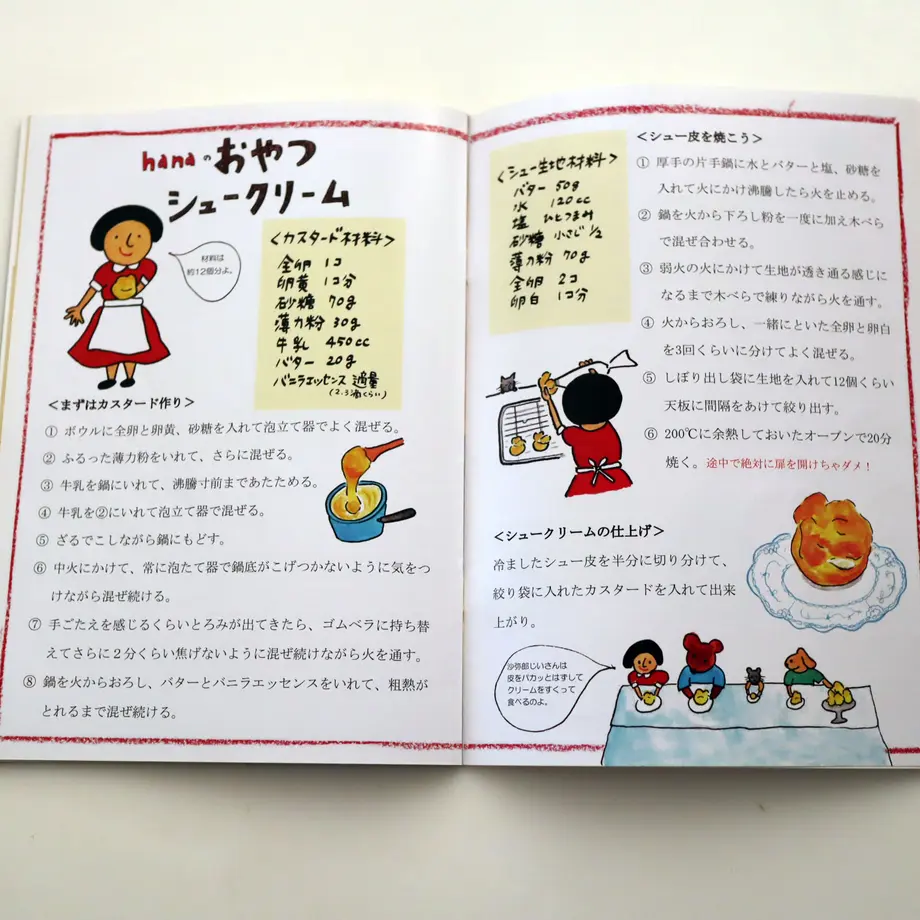 hanaのおやつ
シュークリーム
材料は
約12個分よ。
＜カスタード材料＞
全卵 1コ
卵黄 1コ分
砂糖 70g
薄力粉 30g
牛乳 450cc
バター 20g
バニラエッセンス 適量
(2.3滴くらい)
＜まずはカスタード作り＞
① ボウルに全卵と卵黄、砂糖を入れて泡立て器でよく混ぜる。
② ふるった薄力粉をいれて、さらに混ぜる。
③ 牛乳を鍋にいれて、沸騰寸前まであたためる。
④ 牛乳を②にいれて泡立て器で混ぜる。
⑤ ざるでこしながら鍋にもどす。
⑥ 中火にかけて、常に泡たて器で鍋底がこげつかないように気をつ
けながら混ぜ続ける。
⑦ 手ごたえを感じるくらいとろみが出てきたら、ゴムベラに持ち替
えてさらに２分くらい焦げないように混ぜ続けながら火を通す。
⑧ 鍋を火からおろし、バターとバニラエッセンスをいれて、粗熱が
とれるまで混ぜ続ける。
＜シュー生地材料＞
バター 50g
水 120cc
塩 ひとつまみ
砂糖 小さじ1/2
薄力粉 70g
全卵 2コ
卵白 1コ分
＜シュー皮を焼こう＞
① 厚手の片手鍋に水とバターと塩、砂糖を
入れて火にかけ沸騰したら火を止める。
② 鍋を火から下ろし粉を一度に加え木べら
で混ぜ合わせる。
③ 弱火の火にかけて生地が透き通る感じに
なるまで木べらで練りながら火を通す。
④ 火からおろし、一緒にといた全卵と卵白
を3回くらいに分けてよく混ぜる。
⑤ しぼり出し袋に生地を入れて12個くらい
天板に間隔をあけて絞り出す。
⑥ 200℃に余熱しておいたオーブンで20分
焼く。途中で絶対に扉を開けちゃダメ！
＜シュークリームの仕上げ＞
冷ましたシュー皮を半分に切り分けて、
絞り袋に入れたカスタードを入れて出来
上がり。
沙弥郎じいさんは
皮をパカッとはずして
クリームをすくって
食べるのよ。